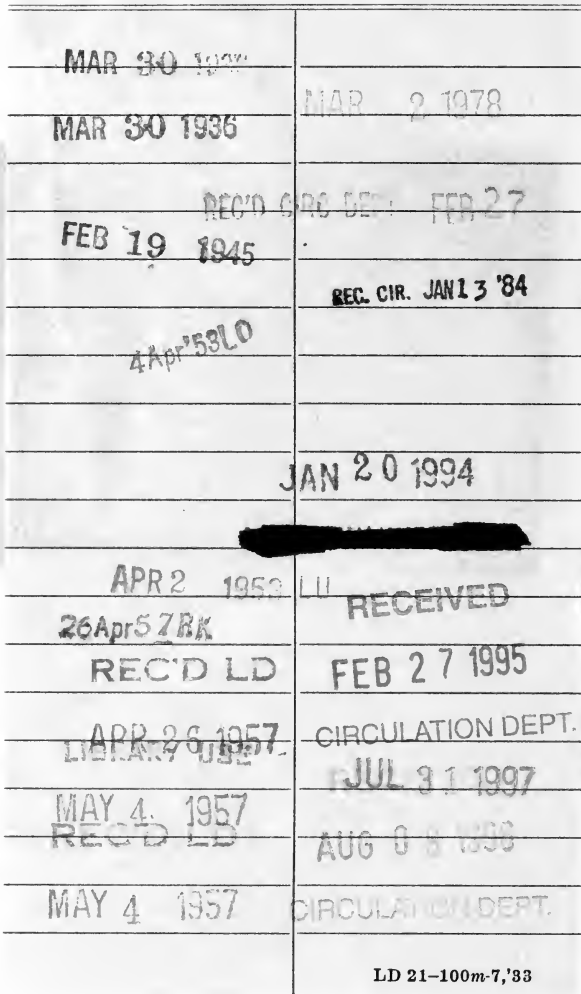 MAR 30
MAR 30 1936
FEB 19 1945
4Apr'53LO
APR 2 1953 LU
26Apr57RK
REC'D LD
APR 26 1957
LIBRARY USE
MAY 4 1957
REC'D LD
MAY 4 1957
MAR 2 1978
REC'D CIRC DEPT FEB 27
REC. CIR. JAN 13 '84
JAN 20 1994
RECEIVED
FEB 27 1995
CIRCULATION DEPT.
JUL 31 1997
AUG 08 1996
CIRCULATION DEPT.
LD 21–100m-7,'33